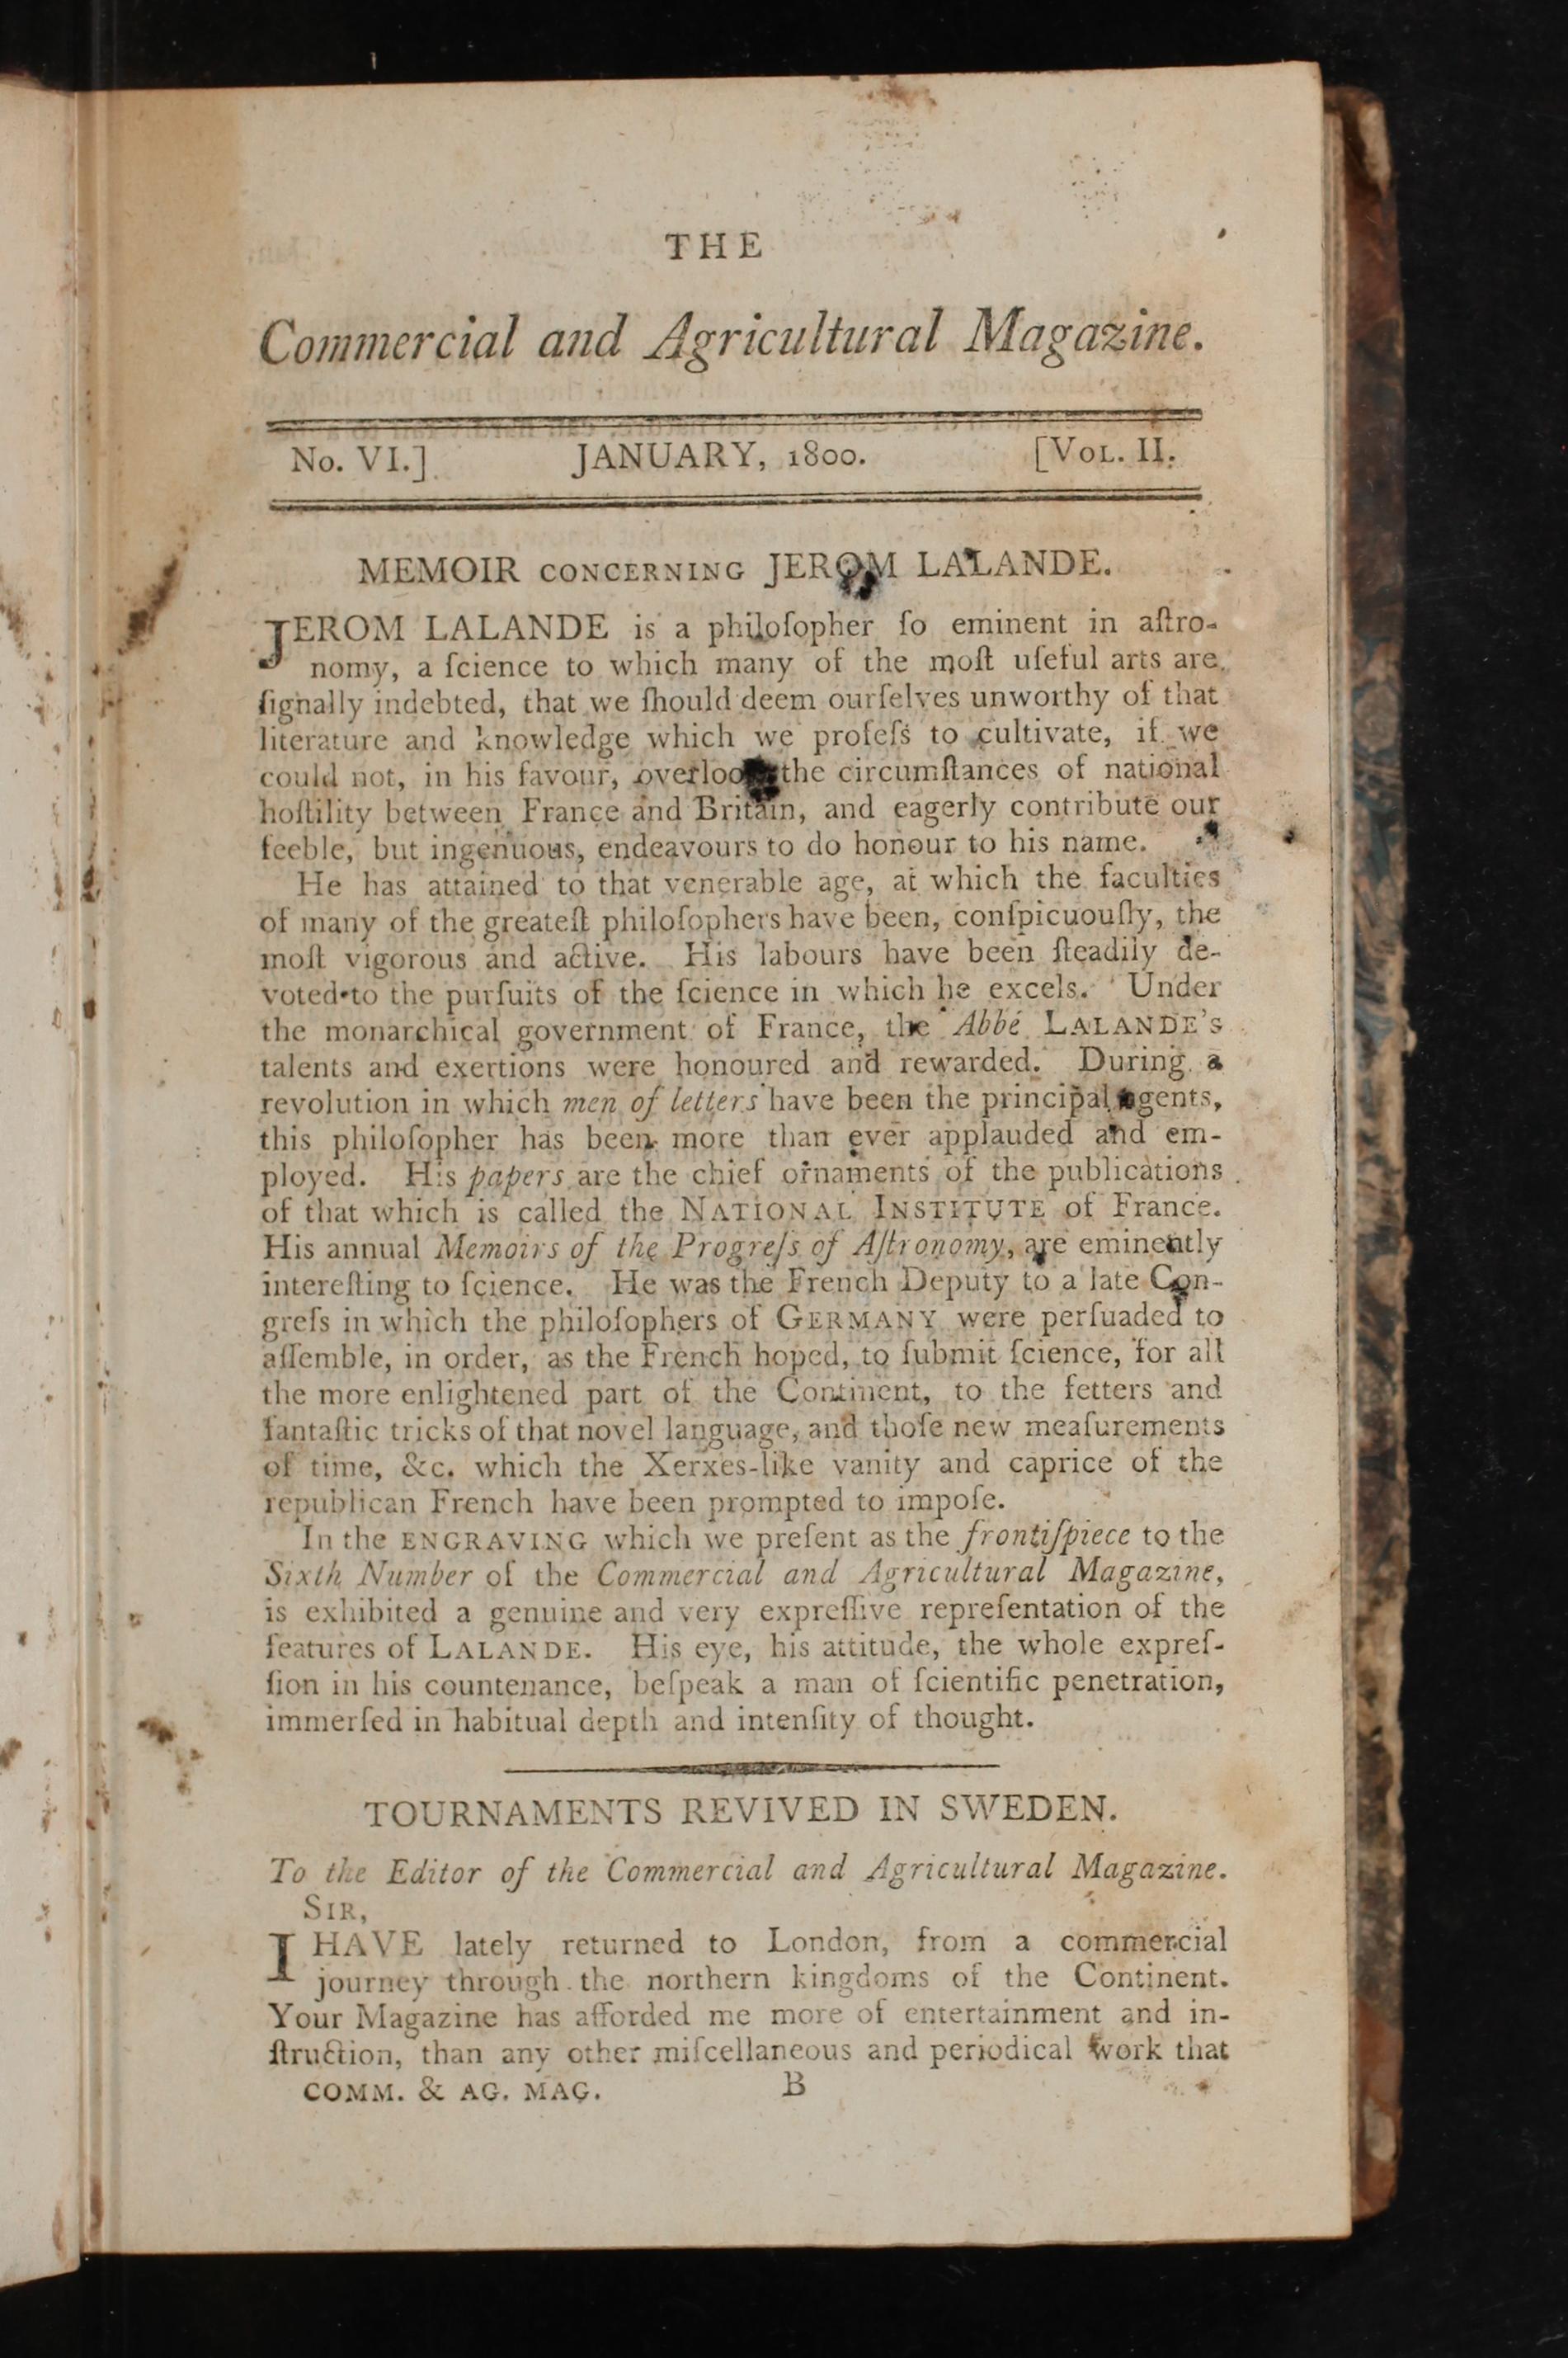 THE
Commercial and Agricultural Magazine.
No. VI.] JANUARY, 1800. [VOL. II.
MEMOIR CONCERNING JEROM LALANDE.
JEROM LALANDE is a philoſopher ſo eminent in aſtro-
nomy, a ſcience to which many of the moſt uſeful arts are
ſignally indebted, that we ſhould deem ourſelves unworthy of that
literature and knowledge which we profeſs to cultivate, if we
could not, in his favour, overlook the circumſtances of national
hoſtility between France and Britain, and eagerly contribute our
feeble, but ingenuous, endeavours to do honour to his name.
He has attained to that venerable age, at which the faculties
of many of the greateſt philoſophers have been, conſpicuouſly, the
moſt vigorous and active. His labours have been ſteadily de-
voted to the purſuits of the ſcience in which he excels. Under
the monarchical government of France, the Abbé LALANDE's
talents and exertions were honoured and rewarded. During a
revolution in which men of letters have been the principal agents,
this philoſopher has been more than ever applauded and em-
ployed. His papers are the chief ornaments of the publications
of that which is called the NATIONAL INSTITUTE of France.
His annual Memoirs of the Progreſs of Aſtronomy, are eminently
intereſting to ſcience. He was the French Deputy to a late Con-
greſs in which the philoſophers of GERMANY were perſuaded to
aſſemble, in order, as the French hoped, to ſubmit ſcience, for all
the more enlightened part of the Continent, to the fetters and
fantaſtic tricks of that novel language, and thoſe new meaſurements
of time, &c. which the Xerxes-like vanity and caprice of the
republican French have been prompted to impoſe.
In the ENGRAVING which we preſent as the frontiſpiece to the
Sixth Number of the Commercial and Agricultural Magazine,
is exhibited a genuine and very expreſſive repreſentation of the
features of LALANDE. His eye, his attitude, the whole expreſ-
ſion in his countenance, beſpeak a man of ſcientific penetration,
immerſed in habitual depth and intenſity of thought.
TOURNAMENTS REVIVED IN SWEDEN.
To the Editor of the Commercial and Agricultural Magazine.
SIR,
I HAVE lately returned to London, from a commercial
journey through the northern kingdoms of the Continent.
Your Magazine has afforded me more of entertainment and in-
ſtruction, than any other miſcellaneous and periodical work that
COMM. & AG. MAG. B